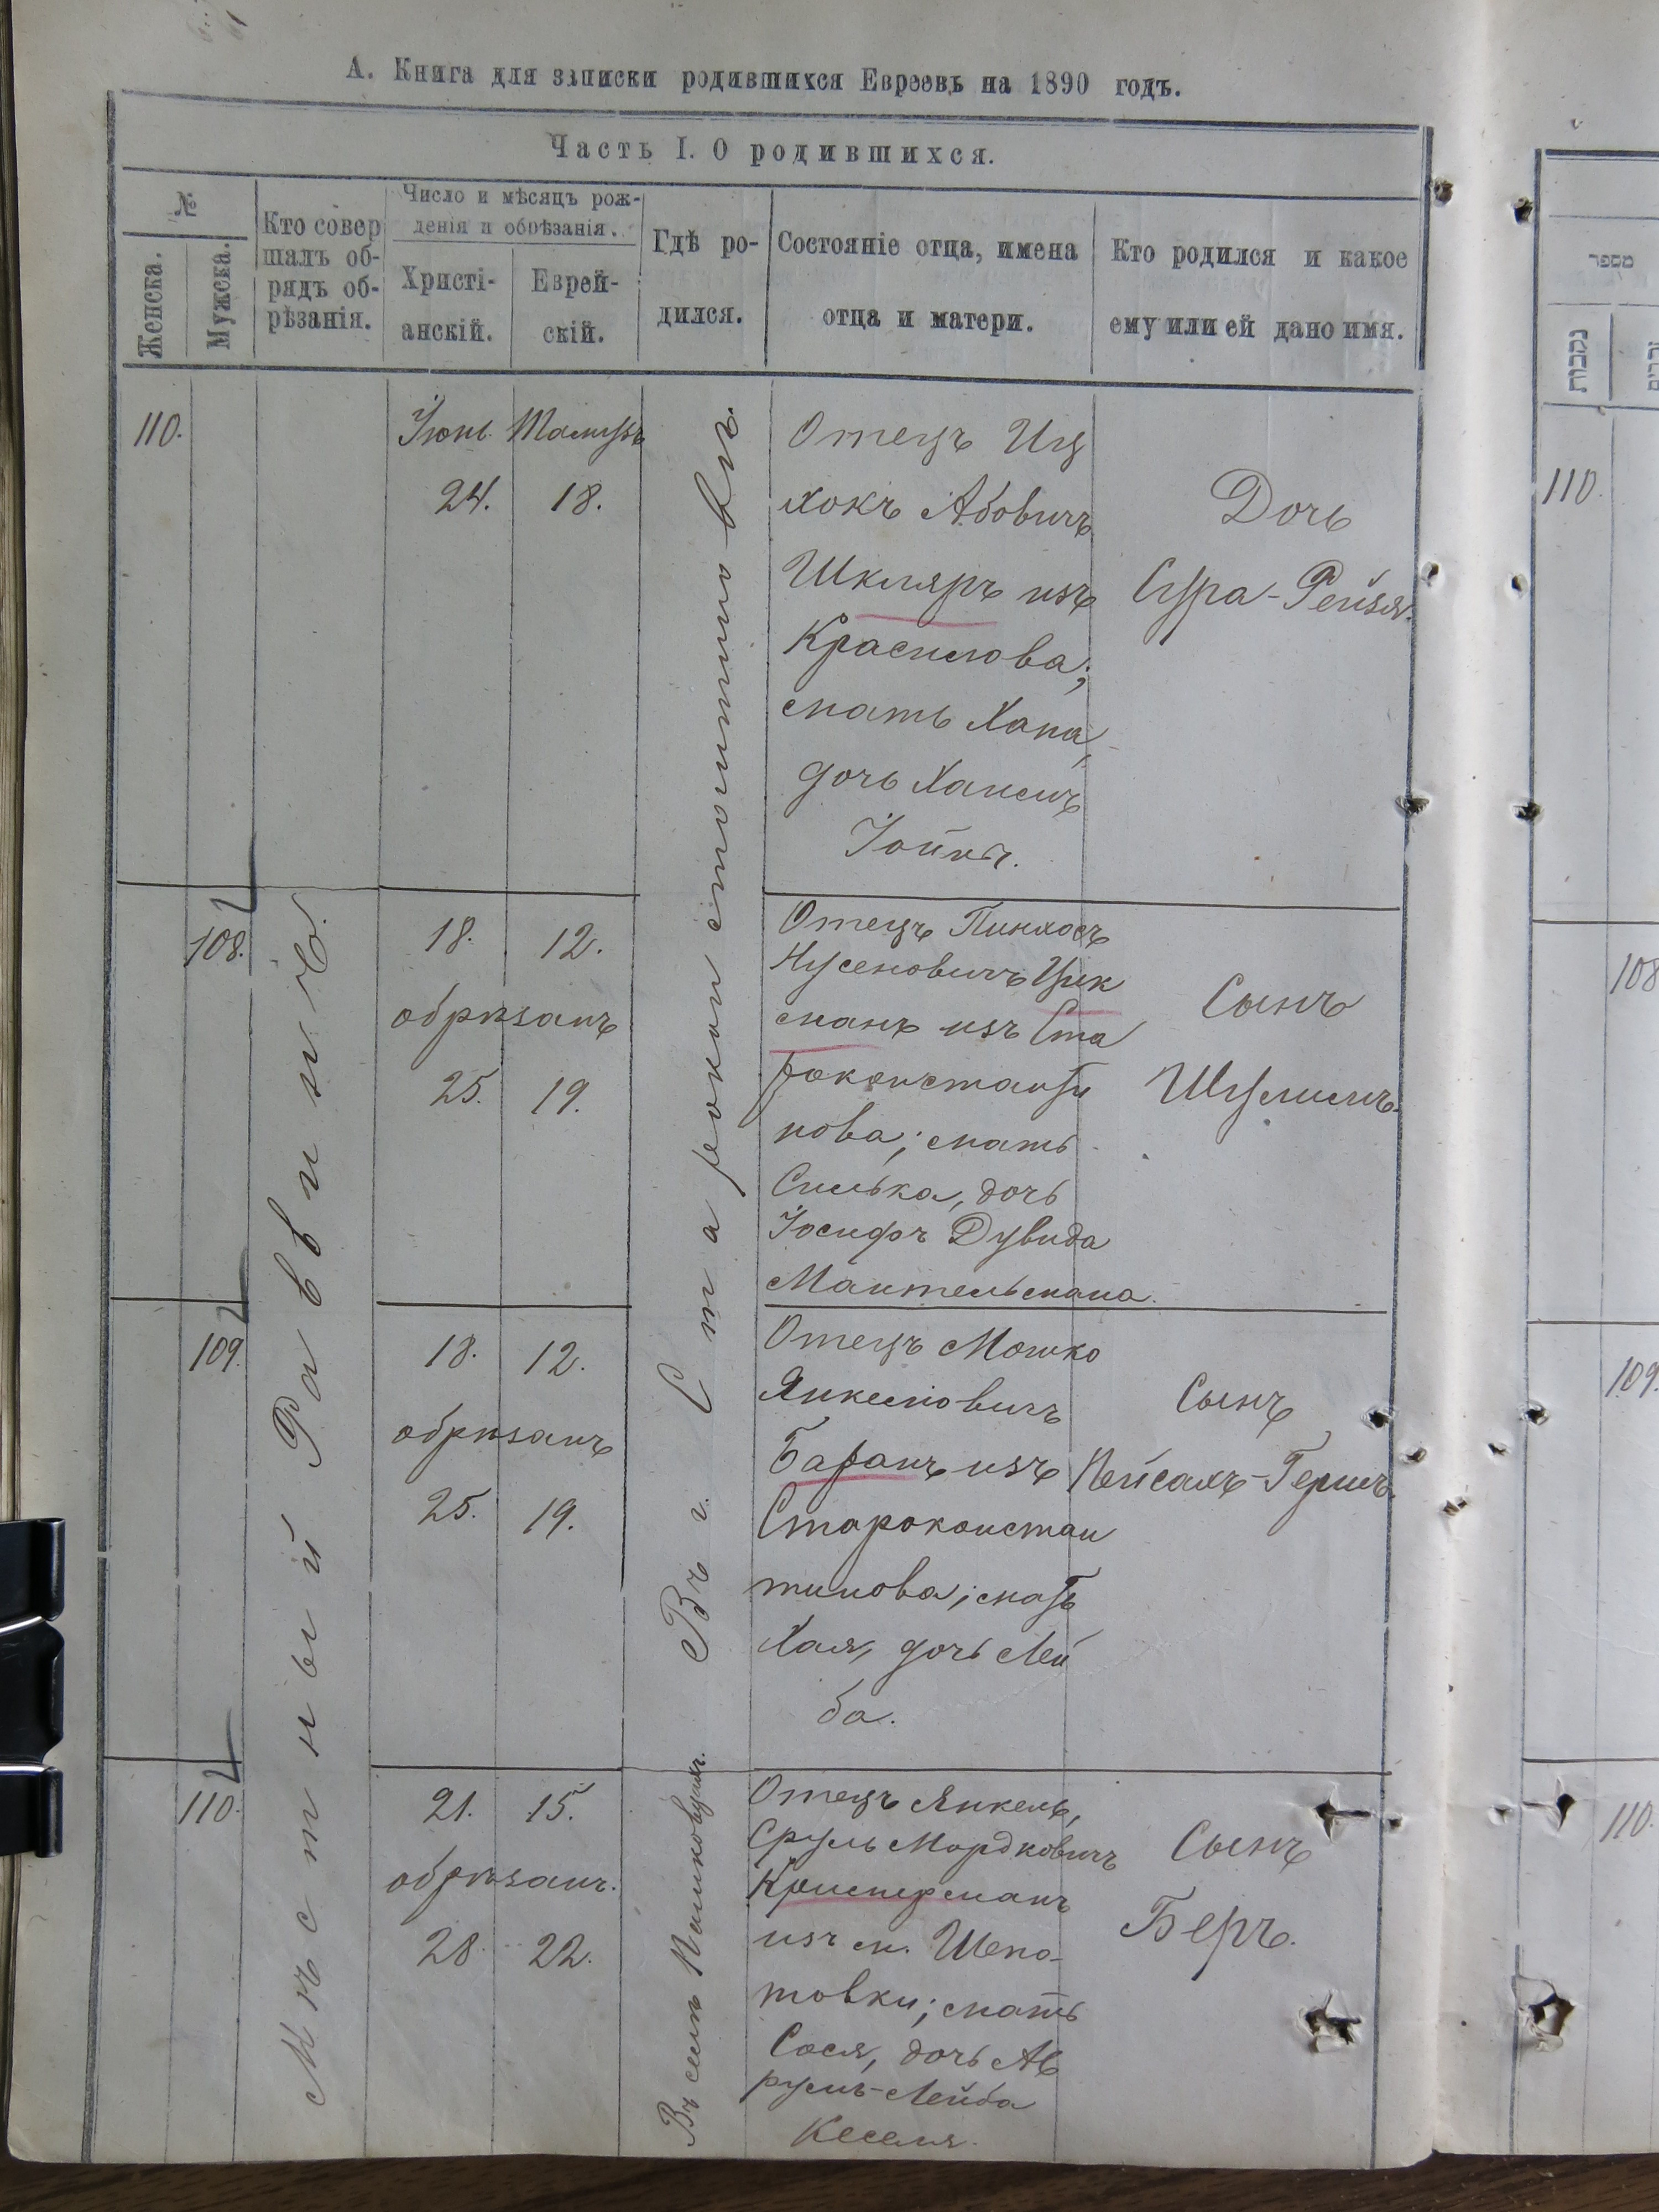 А. Книга для записки родившихся Евреевъ на 1890 годъ.
Часть I. О родившихся.
№
Женска.
Мужска.
Кто совер
шалъ об-
рядъ об-
рѣзанія.
Число и мѣсяцъ рож-
денія и обрѣзанія.
Христі-
анскій.
Еврей-
скій.
Гдѣ ро-
дился.
Состояніе отца, имена
отца и матери.
Кто родился и какое
ему или ей дано имя.
Мѣстный Раввинъ.
Въ г. Староконстантиновѣ.
110.
Іюнь Тамузъ
24. 18.
Отецъ Иц
хокъ Абовичъ
Шкляръ изъ
Красилова;
мать Хана,
дочь Хаимъ
Іойны.
Дочь
Сура-Рейзя.
108.
18. 12.
обрѣзанъ
25. 19.
Отецъ Пинхосъ
Нусеновичъ Цук
манъ изъ Ста
роконстанти
нова; мать
Симка, дочь
Іосифъ Дувида
Мантельмана.
Сынъ
Шулимъ.
109.
18. 12.
обрѣзанъ
25. 19.
Отецъ Мошко
Янкелювичъ
Баранъ изъ
Староконстан
тинова; мать
Хая, дочь Лей
ба.
Сынъ
Пейсахъ-Гершъ.
110.
21. 15.
обрѣзанъ.
28. 22.
Въ селѣ Пашковцахъ.
Отецъ Янкель,
Сруль Мордковичъ
изъ м. Шепе-
товки; мать
Сося, дочь Ав
румъ-Лейба
Кеселя.
Сынъ
Беръ.
מספר
נקבות
זכרים
110.
108
109.
110.